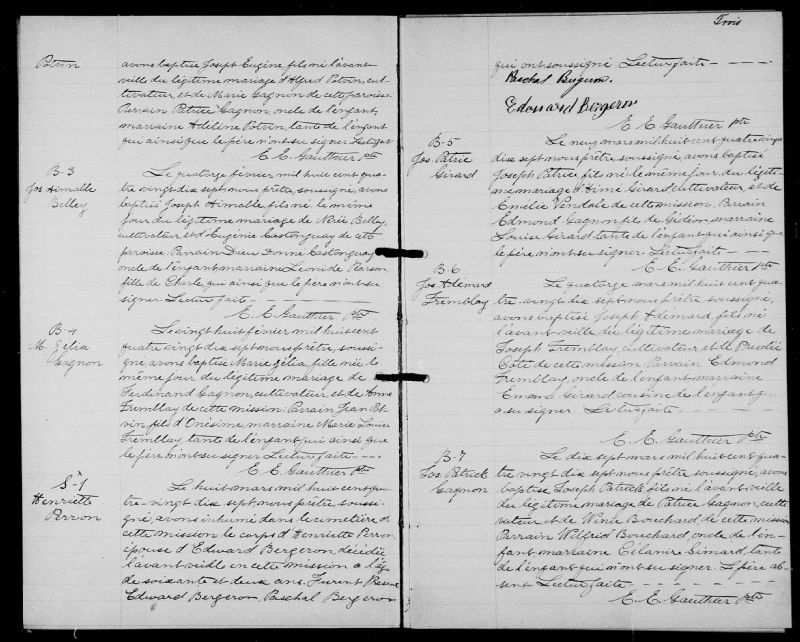 Potvin
avons baptisé Joseph Eugène, fils né l'avant
veille du légitime mariage d'Alfred Potvin, cul-
tivateur, et de Marie Gagnon de cette paroisse.
Parrain Patrice Gagnon, oncle de l'enfant,
marraine Adéline Potvin, tante de l'enfant
qui ainsi que le père n'ont su signer.
E. E. Gauthier ptre
B-3
Jos Aimable
Belley
Le quatorze février mil huit cent qua-
tre vingt dix sept nous prêtre, soussigné, avons
baptisé Joseph Aimable, fils né le même
jour du légitime mariage de Belley,
cultivateur et d'Eugénie Castonguay de cette
paroisse. Parrain Dieu Donné Castonguay
oncle de l'enfant marraine Léonide
fille de Charle, qui ainsi que le père n'ont su
signer. Lecture faite —
E. E. Gauthier Ptre
B-4
M. Zélia
Gagnon
Le vingt huit février mil huit cent
quatre vingt dix sept nous prêtre, soussi-
gné, avons baptisé Marie Zélia, fille née le
même jour du légitime mariage de
Ferdinand Gagnon, cultivateur, et de Anne
Tremblay de cette mission; Parrain Jean Pot-
vin fils d'Onésime, marraine Marie Louise
Tremblay, tante de l'enfant qui ainsi que
le père n'ont su signer Lecture faite —
E. E. Gauthier Ptre
S-1
Henriette
Perron
Le huit mars mil huit cent qua-
tre-vingt dix sept nous prêtre, soussi-
gné, avons inhumé dans le cimetière de
cette mission le corps d'Henriette Perron
épouse d'Edward Bergeron, décédée
l'avant veille en cette mission a l'âge
de soixante et deux ans. Furent
Edward Bergeron, Paschal Bergeron
Trois
qui ont soussigné Lecture faite — — — —
Paschal Bergeron.
Edouard Bergeron
E. E. Gauthier ptre
B-5
Jos Patrice
Girard
Le neuf mars mil huit cent quatre vingt
dix sept nous prêtre, soussigné, avons baptisé
Joseph Patrice fils né le même jour du légiti-
me mariage d'Aimé Girard cultivateur, et de
Emélie de cette mission. Parrain
Edmond Gagnon fils de Gédéon, marraine
Louise Girard tante de l'enfant qui ainsi que
le père n'ont su signer. Lecture faite — — —
E. E. Gauthier Ptre
B-6
Jos Adémard
Tremblay
Le quatorze mars mil huit cent qua-
tre-vingt dix sept nous prêtre soussigné,
avons baptisé Joseph Adémard fils né
l'avant veille du légitime mariage de
Joseph Tremblay, cultivateur, et de
Côté de cette mission Parrain Edmond
Tremblay, oncle de l'enfant marraine
Emma Girard cousine de l'enfant qui
a su signer. Lecture faite — — — —
E. E. Gauthier Ptre
B-7
Jos Patrick
Gagnon
Le dix sept mars mil huit cent qua-
tre vingt dix sept nous prêtre soussigné, avons
baptisé Joseph Patrick fils né l'avant veille
du légitime mariage de Patrice Gagnon, culti-
vateur et de Winie Bouchard de cette mission
Parrain Wilfrid Bouchard oncle de l'en-
fant marraine Célanire Simard tante
de l'enfant qui n'ont su signer. Le père ab-
sent Lecture faite — — — — — — —
E. E. Gauthier Ptre